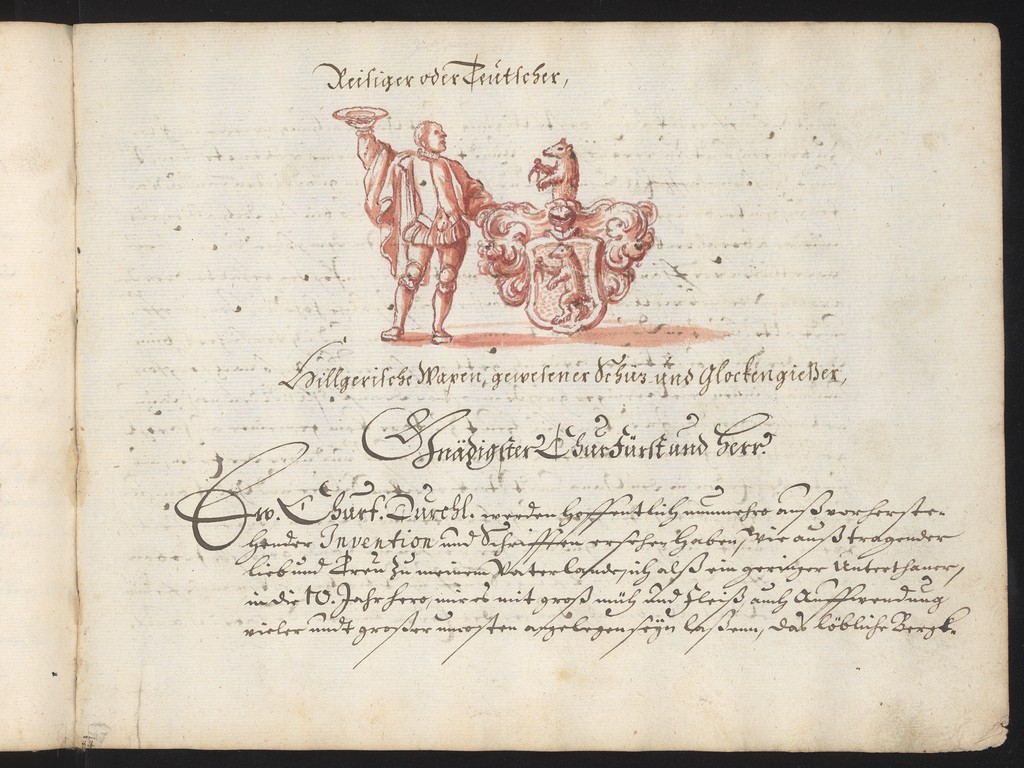 Reisiger oder Teutscher,
Hillgerische Wapen, gewesener Schüz und Glockengießer,
Gnädigster ChurFürst und Herr.
Ew. Churf. Durchl. werden hoffentlich nunmehro auß vorherste-
hender Invention und Schrifften ersehen haben, wie auß tragender
lieb und Treu zu meinem Vaterlande, ich alß ein geringer Unterthaner,
in die 10. Jahr hero, mir es mit groß müh und Fleiß auch Auffwendung
vieler undt großer uncosten angelegen seyn laßenn, das löbliche Bergk-